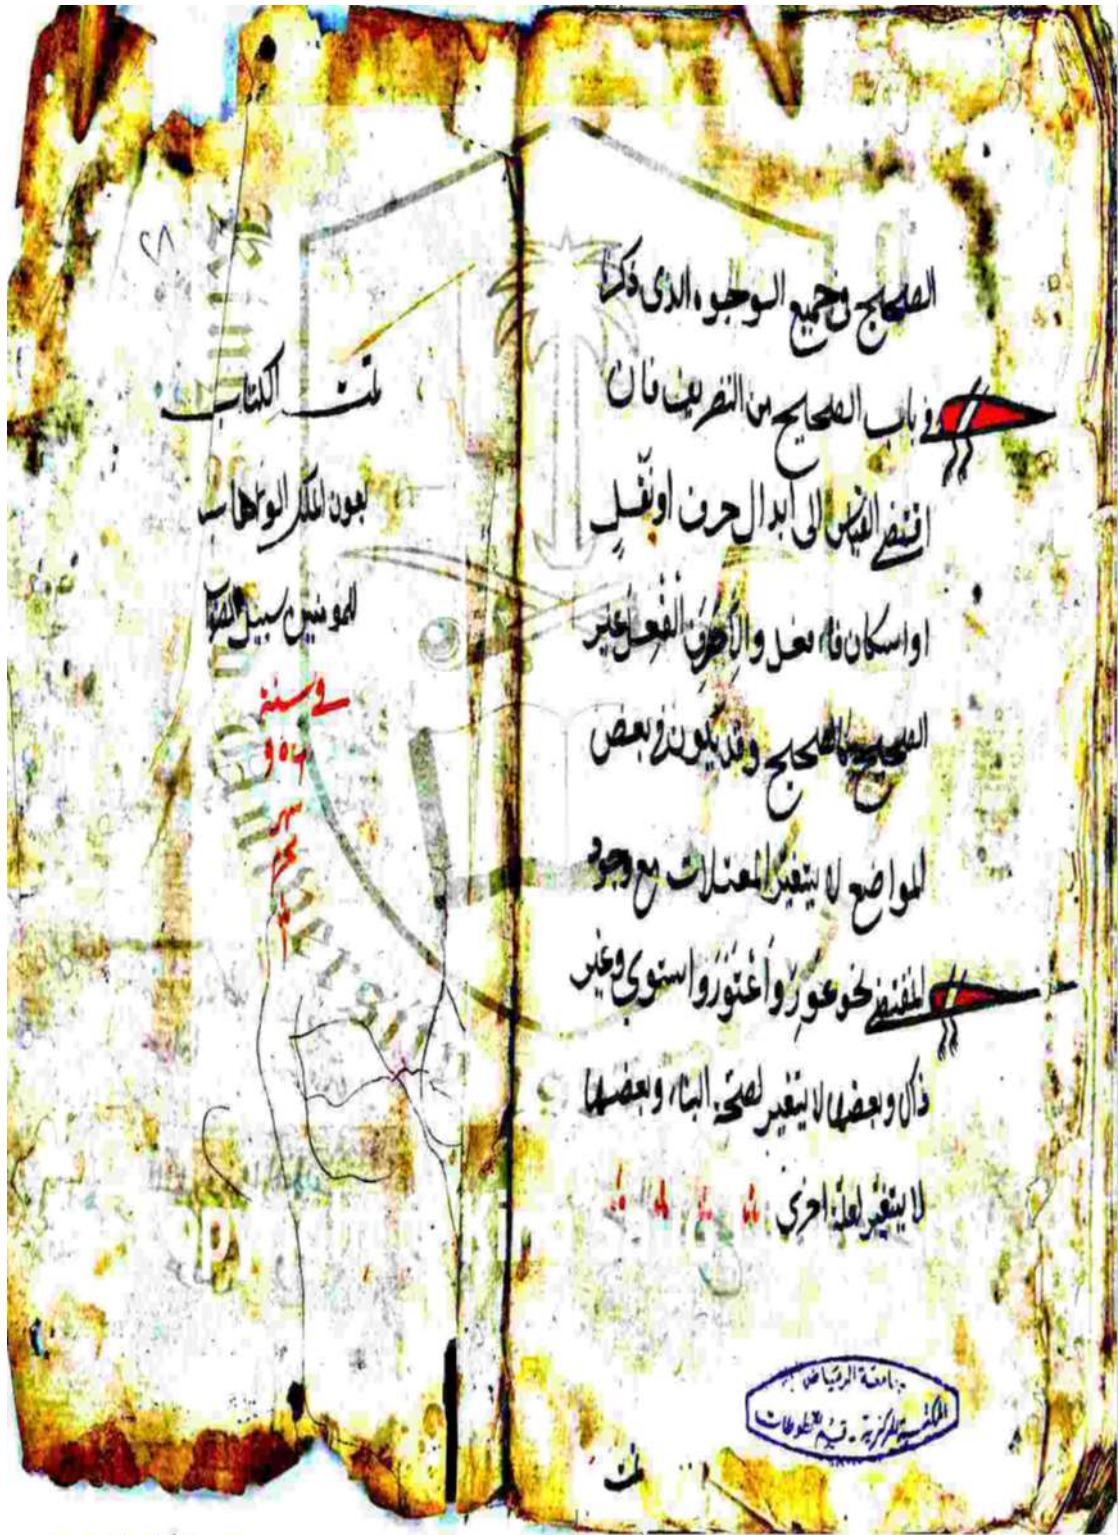 الصحيح في جميع الوجوه الذى ذكرنا
في باب الصحيح من التصريف فان
اقتضى القياس الى ابدال حرف او نقل
او اسكان فافعل والا صرف الفعل غير
الصحيح كالصحيح وقد يكون في بعض
المواضع لا يتغير المعتلات مع وجود
المقتضى نحو عَوِرَ واعْتَوَرَ واستوى وغير
ذلك وبعضها لا يتغير لصحة البناء وبعضها
لا يتغير لعلة اخرى
تمت
جامعة الرياض
المكتبة المركزية - قسم المخطوطات
٢٨
تمت الكتاب
بعون الملك الوهاب
للمومنين سبيل الصواب
في سنة
٩٥٦
شهر
محرم